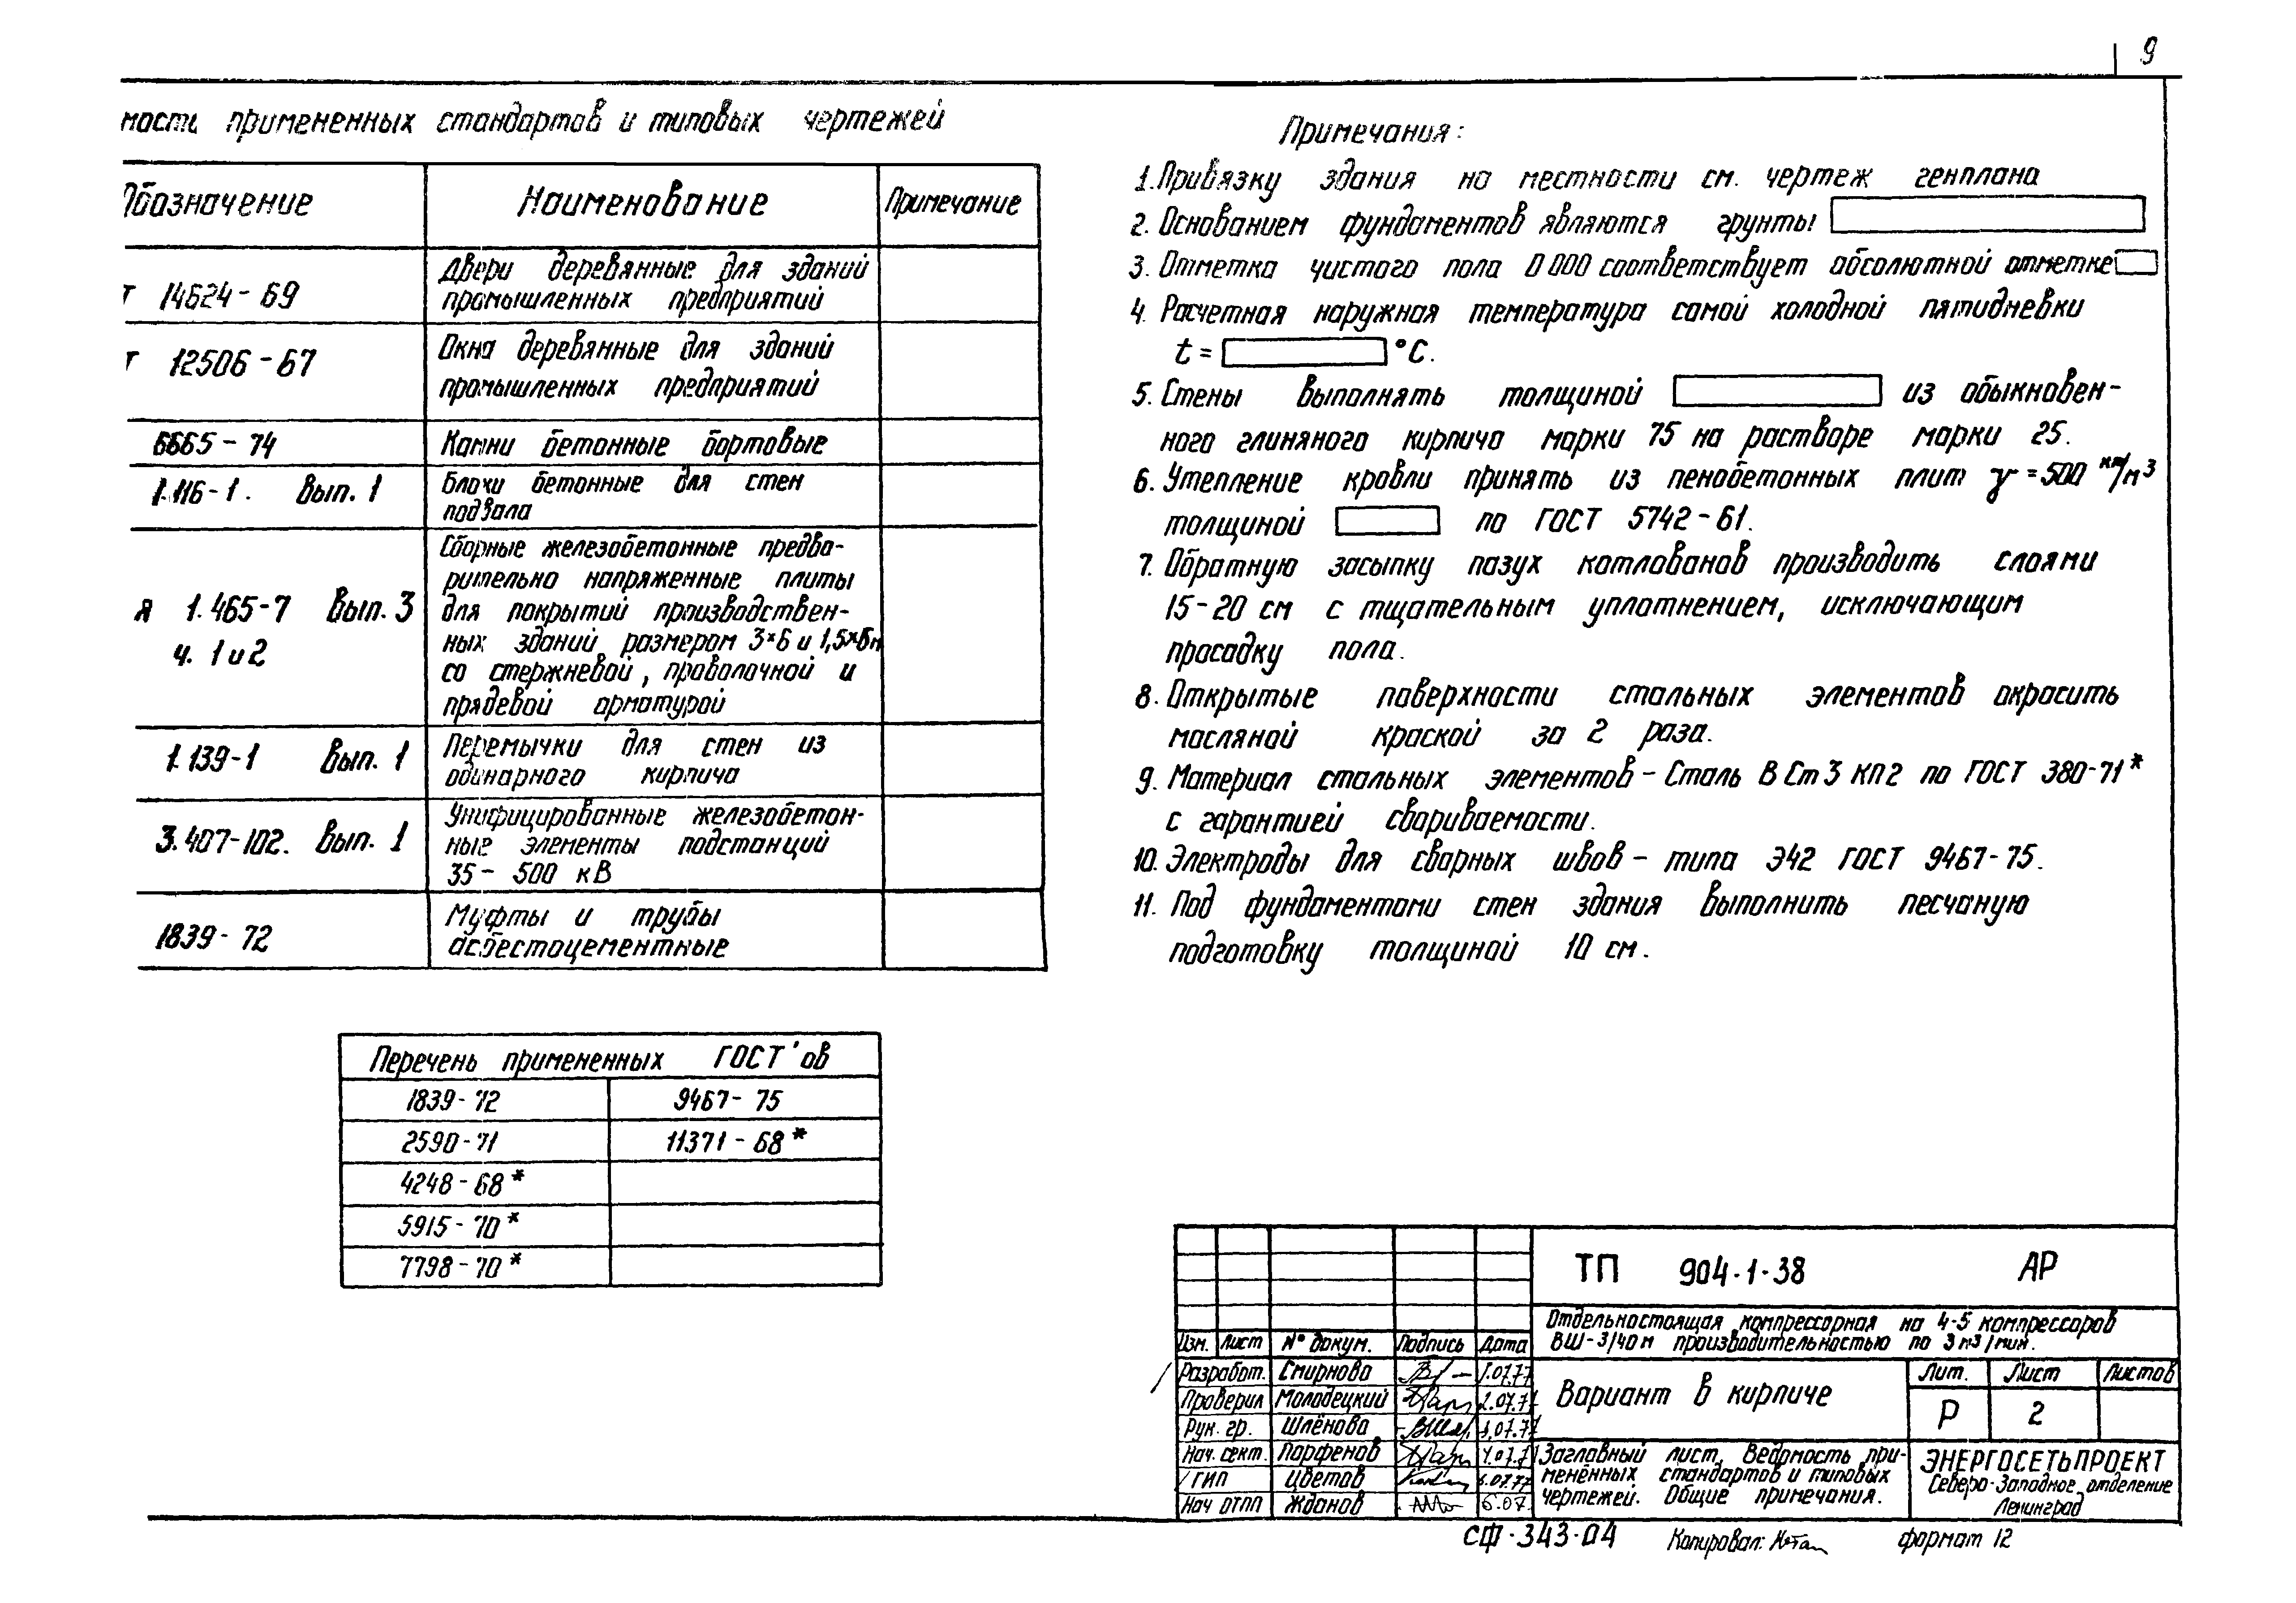 9
ности примененных стандартов и типовых чертежей
Обозначение Наименование Примечание
Т 14624-69 Двери деревянные для зданий
промышленных предприятий
Т 12506-67 Окна деревянные для зданий
промышленных предприятий
6665-74 Камни бетонные бортовые
1.116-1. Вып. 1 Блоки бетонные для стен
подвала
Сборные железобетонные предва-
рительно напряженные плиты
я 1.465-7 Вып. 3 для покрытий производствен-
ч. 1 и 2 ных зданий размером 3×6 и 1,5×6м
со стержневой, проволочной и
прядевой арматурой
1.139-1 Вып. 1 Перемычки для стен из
одинарного кирпича
3.407-102. Вып. 1 Унифицированные железобетон-
ные элементы подстанций
35-500 кВ
1839-72 Муфты и трубы
асбестоцементные
Перечень примененных ГОСТ'ов
1839-72 9467-75
2590-71 11371-68*
4248-68*
5915-70*
7798-70*
Примечания:
1. Привязку здания на местности см. чертеж генплана
2. Основанием фундаментов являются грунты
3. Отметка чистого пола 0 000 соответствует абсолютной отметке
4. Расчетная наружная температура самой холодной пятидневки
t = °C.
5. Стены выполнять толщиной из обыкновен-
ного глиняного кирпича марки 75 на растворе марки 25.
6. Утепление кровли принять из пенобетонных плит γ=500 кг/м³
толщиной по ГОСТ 5742-61.
7. Обратную засыпку пазух котлованов производить слоями
15-20 см с тщательным уплотнением, исключающим
просадку пола.
8. Открытые поверхности стальных элементов окрасить
масляной краской за 2 раза.
9. Материал стальных элементов - Сталь ВСт3 кп2 по ГОСТ 380-71*
с гарантией свариваемости.
10. Электроды для сварных швов - типа Э42 ГОСТ 9467-75.
11. Под фундаментами стен здания выполнить песчаную
подготовку толщиной 10 см.
ТП 904-1-38 АР
Отдельностоящая компрессорная на 4-5 компрессоров
ВШ-3/40м производительностью по 3 м³/мин.
Изм. Лист N° докум. Подпись Дата
Разработ. Смирнова 1.07.77
Проверил Молодецкий 2.07.77
Рук. гр. Шлёнова 3.07.77
Нач. сект. Парфенов 4.07.77
ГИП Цветов 5.07.77
Нач ОТПП Жданов 6.07.
Вариант в кирпиче
Лит. Лист Листов
Р 2
Заглавный лист, Ведомость при-
менённых стандартов и типовых
чертежей. Общие примечания.
ЭНЕРГОСЕТЬПРОЕКТ
Северо-Западное отделение
Ленинград
СФ-343-04 Копировал: формат 12